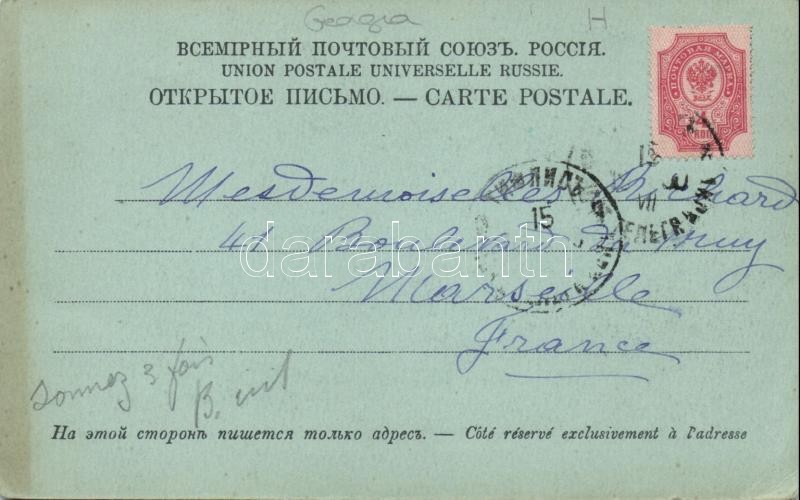 Georgia H
ВСЕМІРНЫЙ ПОЧТОВЫЙ СОЮЗЪ. РОССІЯ.
UNION POSTALE UNIVERSELLE RUSSIE.
ОТКРЫТОЕ ПИСЬМО. — CARTE POSTALE.
ПОЧТОВАЯ МАРКА
15
VII
15
Mesdemoiselles
41 Boulevard du
darabanth
Marseille
France
Sonnez 3 fois
На этой сторонѣ пишется только адресъ. — Côté réservé exclusivement à l'adresse